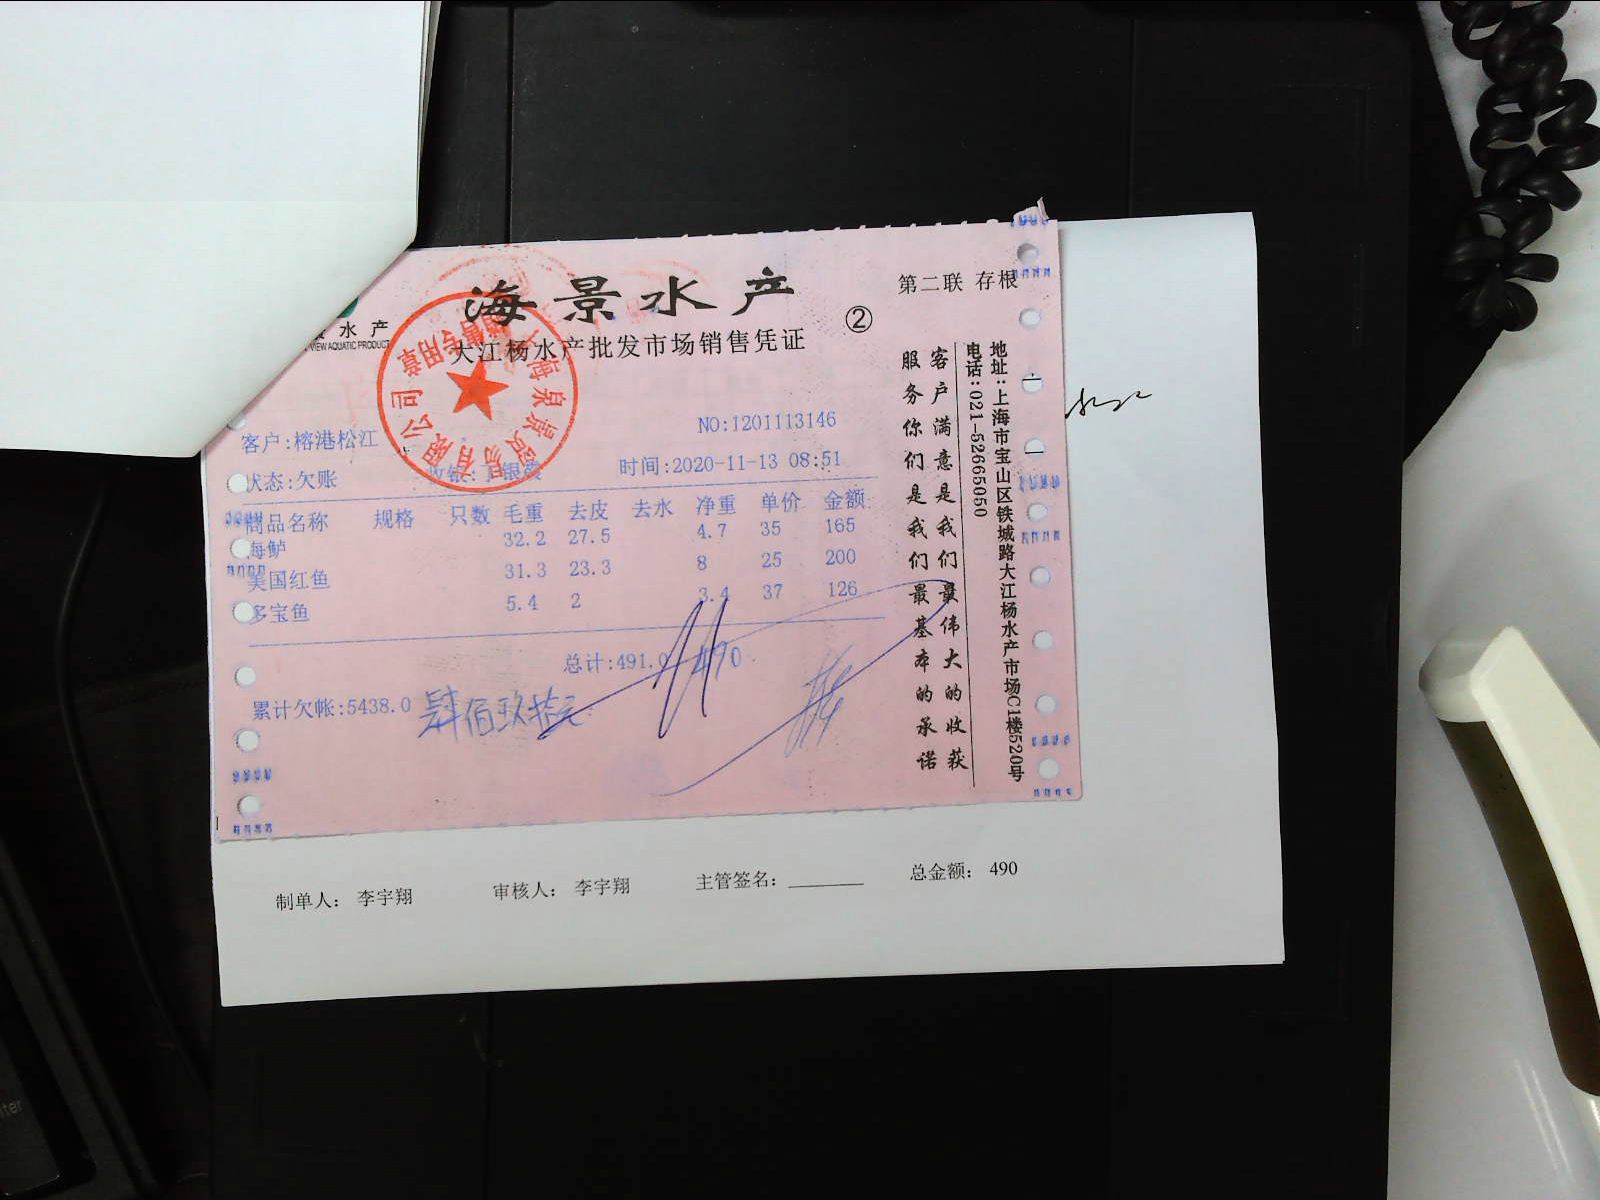 海景水产
第二联 存根
②
水产
VIEW AQUATIC PRODUCT
大江杨水产批发市场销售凭证
销售专用章
NO:1201113146
客户:榕港松江
时间:2020-11-13 08:51
状态:欠账
商品名称 规格 只数 毛重 去皮 去水 净重 单价 金额
海鲈 32.2 27.5 4.7 35 165
美国红鱼 31.3 23.3 8 25 200
多宝鱼 5.4 2 3.4 37 126
总计:491.0 490
累计欠帐:5438.0 肆佰玖拾元
客户满意是我们最伟大的收获
服务你们是我们最基本的承诺
地址:上海市宝山区铁城路大江杨水产市场C1楼520号
电话:021-52665050
制单人: 李宇翔 审核人: 李宇翔 主管签名: 总金额: 490